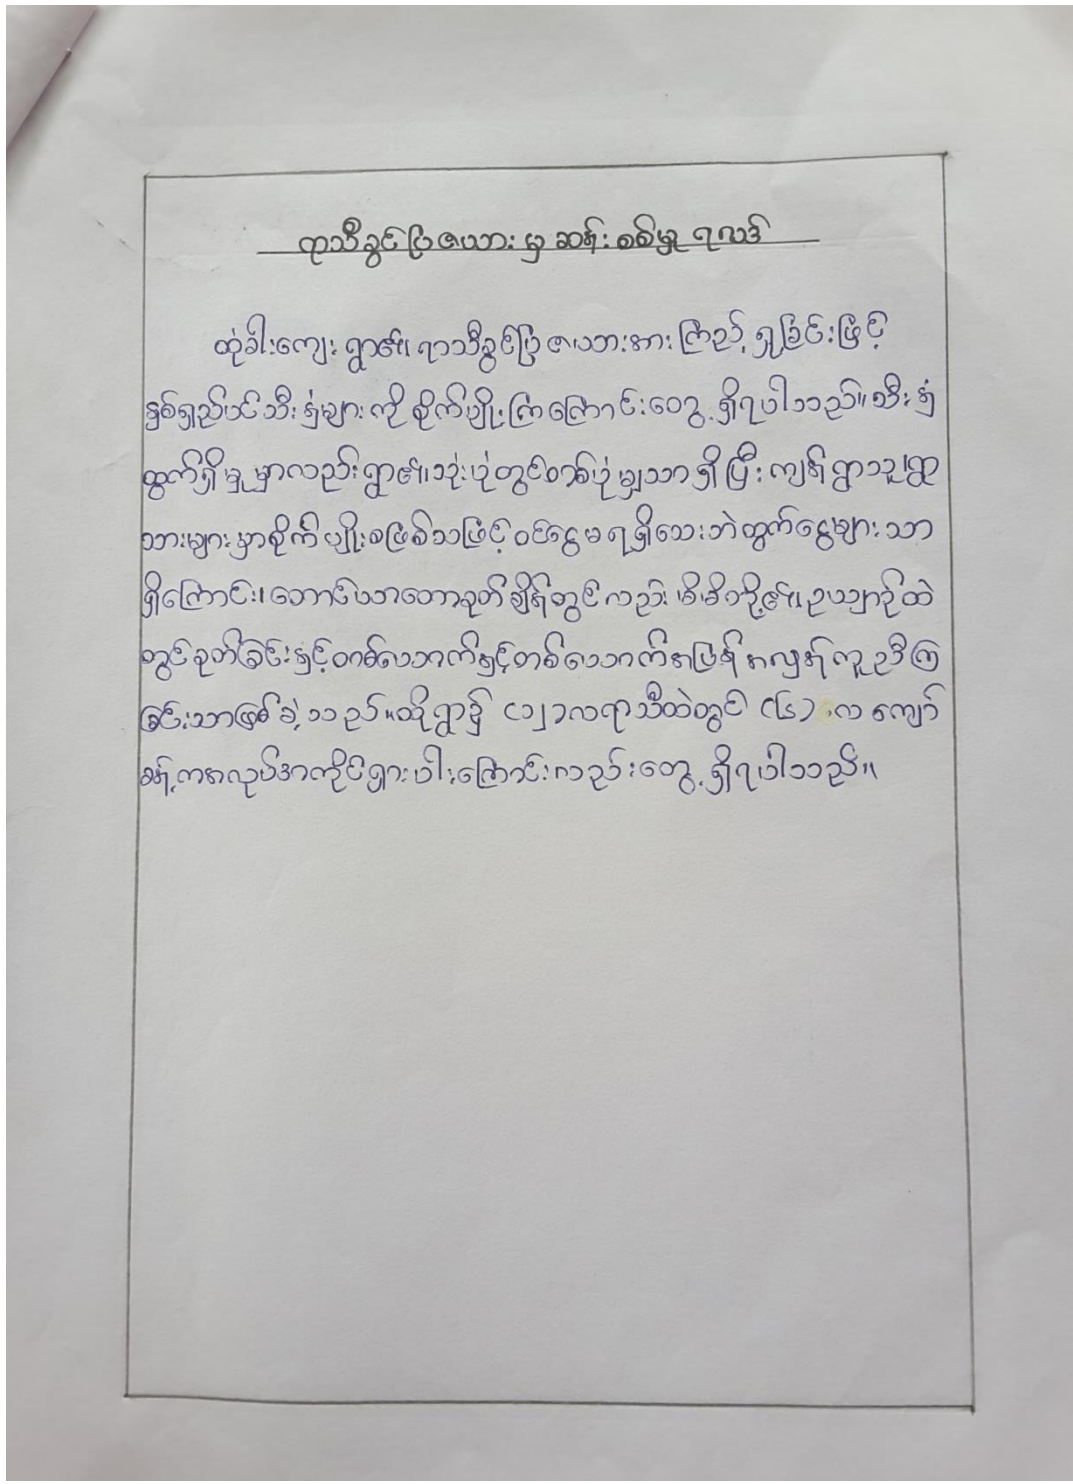 ရာသီခွင်ပြဇယားမှ ဆန်းစစ်မှု ရလဒ်
ထုံခါးကျေးရွာ၏ ရာသီခွင်ပြဇယားအား ကြည့်ရှုခြင်းဖြင့်
နှစ်ရှည်ပင်သီးနှံများကို စိုက်ပျိုးကြကြောင်းတွေ့ရှိရပါသည်။ သီးနှံ
ထွက်ရှိမှုမှာလည်းရွာ၏သုံးပုံတွင်တစ်ပုံမျှသာရှိပြီး ကျန်ရွာသူ၊ရွာ
သားများမှာစိုက်ပျိုးစဖြစ်သဖြင့် ဝင်ငွေမရရှိသေးဘဲထွက်ငွေများသာ
ရှိကြောင်း၊ တောင်ယာတောခုတ်ချိန်တွင်လည်း မိမိတို့၏ဥယျာဉ်ထဲ
တွင်ခုတ်ခြင်းနှင့်တစ်ယောက်နှင့်တစ်ယောက်အပြန်အလှန်ကူညီကြ
ခြင်းသာဖြစ်ခဲ့သည်။ ထိုရွာ၌ (၁၂)လရာသီထဲတွင် (၆)လကျော်
ခန့်ကအလုပ်အကိုင်ရှားပါးကြောင်းလည်းတွေ့ရှိရပါသည်။